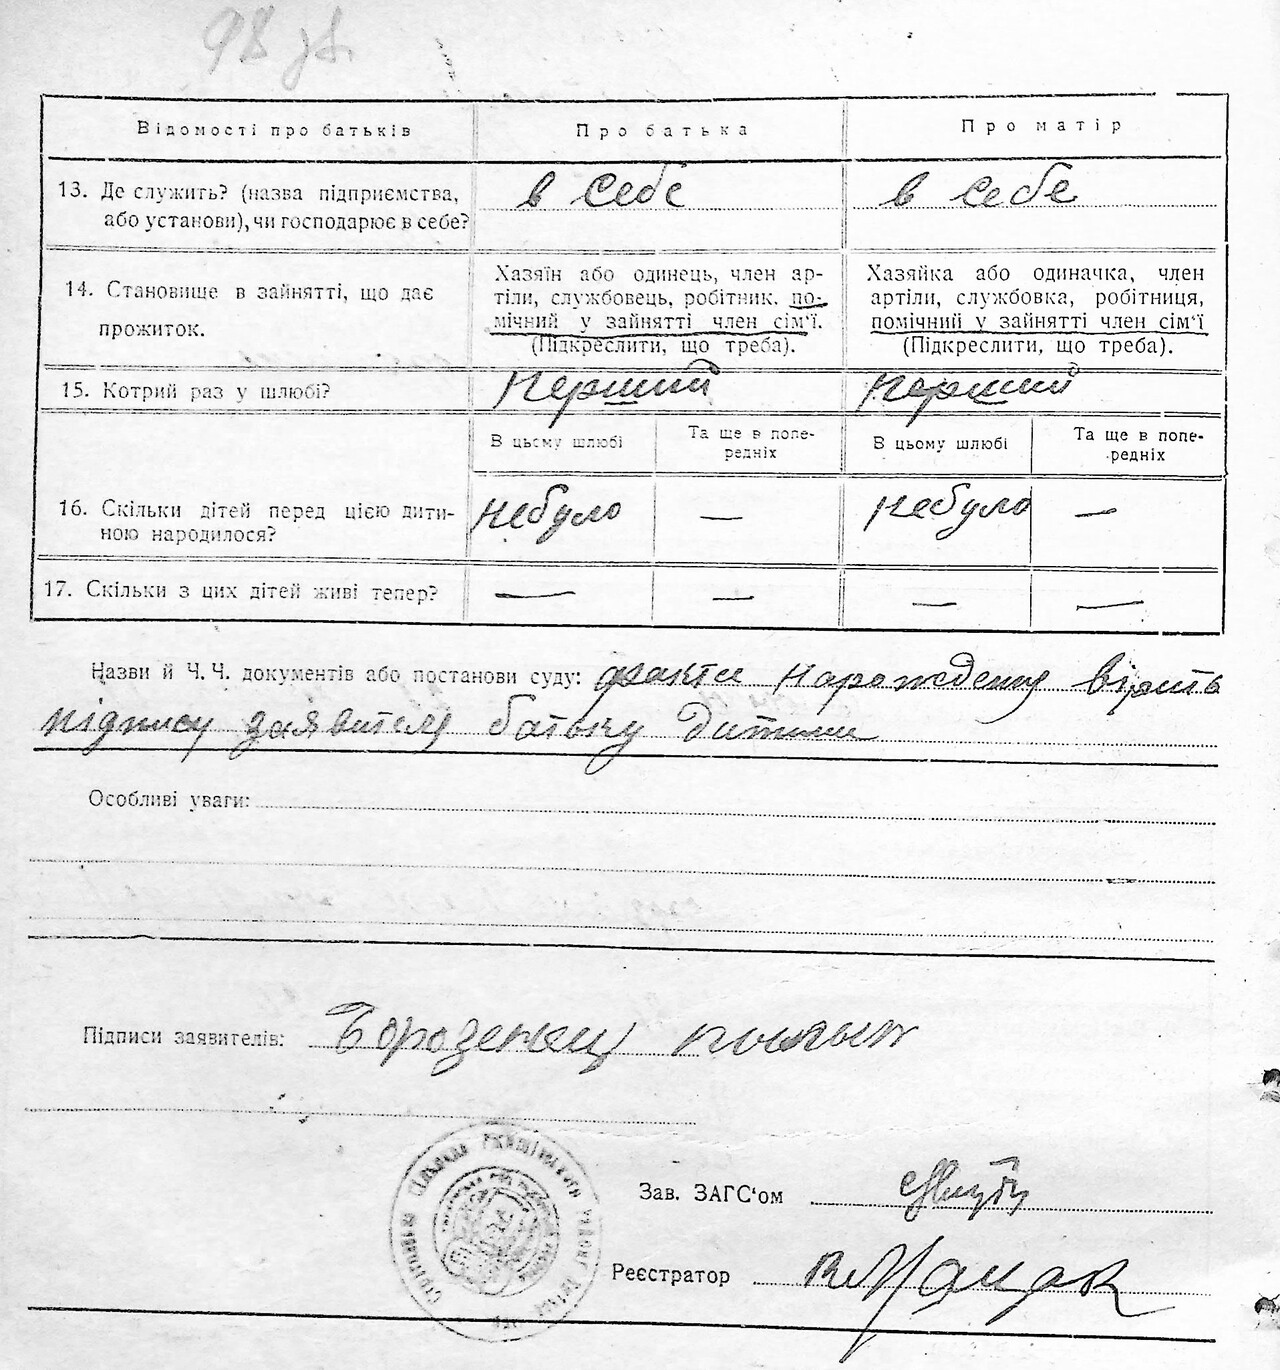 98 зв.
Відомості про батьків
Про батька
Про матір
13. Де служить? (назва підприємства,
або установи), чи господарює в себе?
в себе
в себе
14. Становище в зайнятті, що дає
прожиток.
Хазяїн або одинець, член ар-
тіли, службовець, робітник, по-
мічний у зайнятті член сім'ї.
(Підкреслити, що треба).
Хазяйка або одиначка, член
артіли, службовка, робітниця,
помічний у зайнятті член сім'ї
(Підкреслити, що треба).
15. Котрий раз у шлюбі?
Перший
Перший
В цьому шлюбі
Та ще в попе-
редніх
В цьому шлюбі
Та ще в попе-
редніх
16. Скільки дітей перед цією дити-
ною народилося?
небуло
—
небуло
—
17. Скільки з цих дітей живі тепер?
—
—
—
—
Назви й Ч. Ч. документів або постанови суду:
підпису заявителя батьку дитини
Особливі уваги:
Підписи заявителів: Борозенец
Зав. ЗАГС'ом
Реєстратор